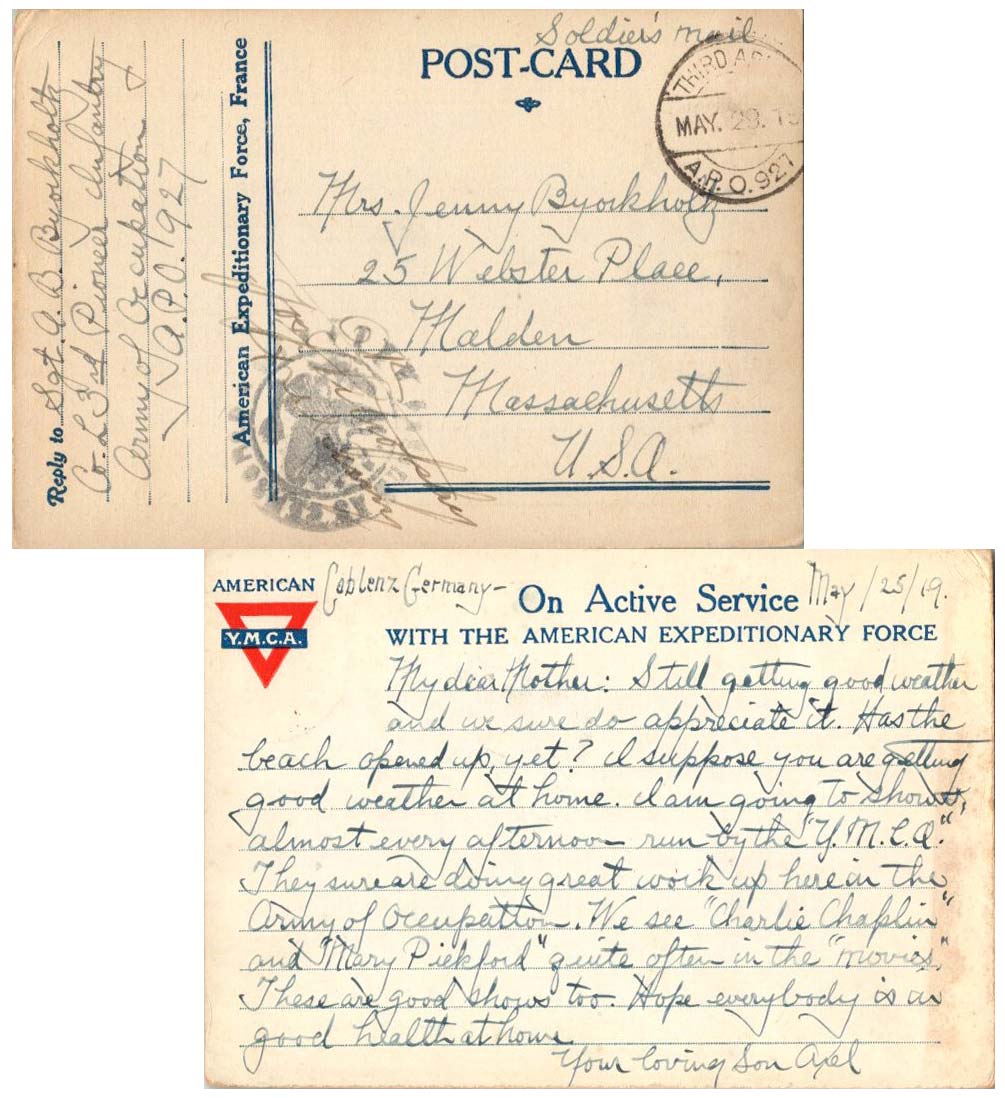 Soldier's mail
POST-CARD
THIRD A
MAY. 28. 19
A.P.O. 927
Mrs. Jenny Byorkholtz
25 Webster Place,
Malden
Massachusetts
U.S.A.
American Expeditionary Force, France
Reply to Sgt. A. B. Byorkholtz
Co. L 3rd Pioneer Infantry
Army of Occupation
A.P.O. 927
AMERICAN
Y.M.C.A.
Coblenz Germany-
On Active Service
May/25/19.
WITH THE AMERICAN EXPEDITIONARY FORCE
My dear Mother: Still getting good weather
and we sure do appreciate it. Has the
beach opened up, yet? I suppose you are getting
good weather at home. I am going to shows,
almost every afternoon run by the "Y.M.C.A."
They sure are doing great work up here in the
Army of Occupation. We see "Charlie Chaplin"
and "Mary Pickford" quite often in the "movies."
These are good shows too. Hope everybody is in
good health at home
Your loving Son Axel